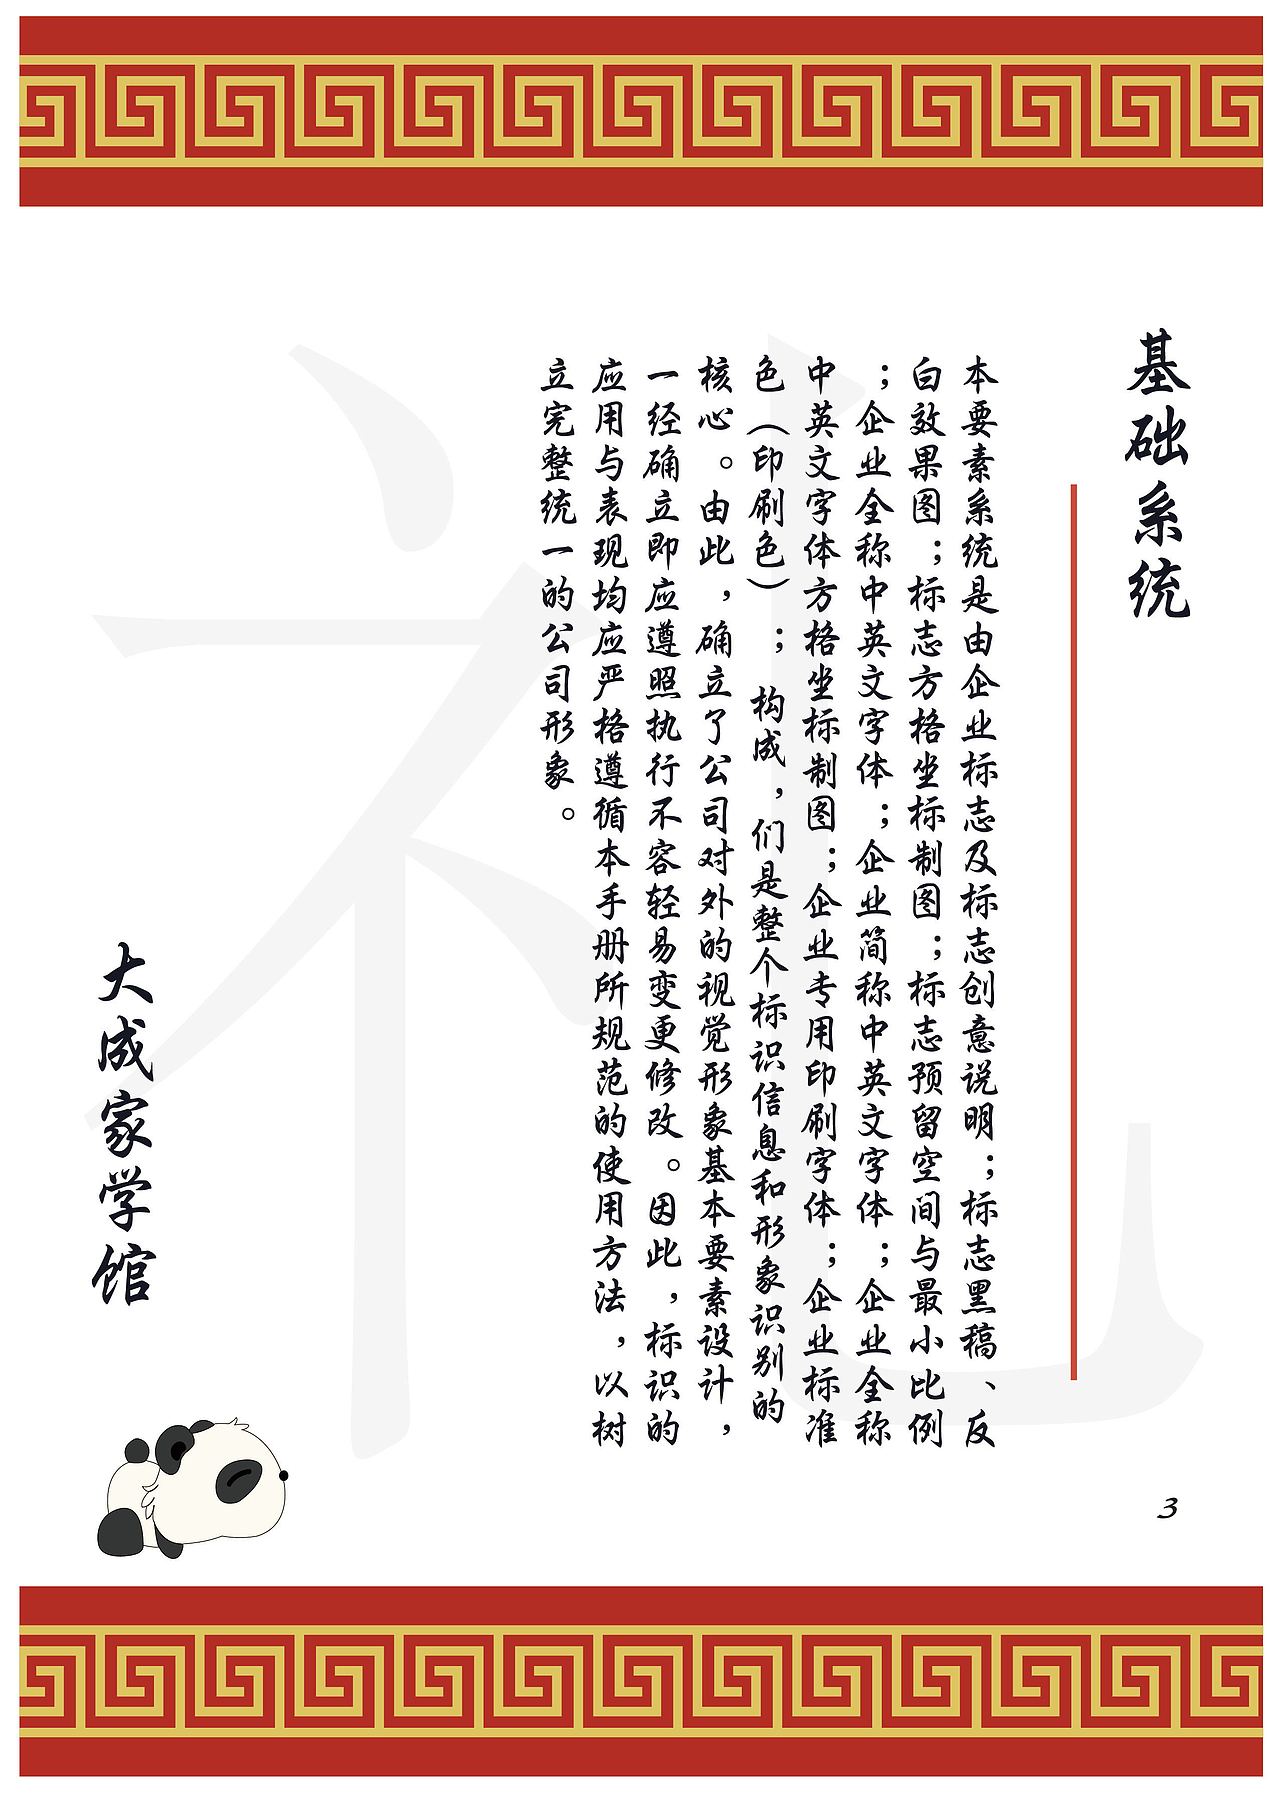 基础系统
本要素系统是由企业标志及标志创意说明；标志黑稿、反
白效果图；标志方格坐标制图；标志预留空间与最小比例
；企业全称中英文字体；企业简称中英文字体；企业全称
中英文字体方格坐标制图；企业专用印刷字体；企业标准
色（印刷色）；构成，们是整个标识信息和形象识别的
核心。由此，确立了公司对外的视觉形象基本要素设计，
一经确立即应遵照执行不容轻易变更修改。因此，标识的
应用与表现均应严格遵循本手册所规范的使用方法，以树
立完整统一的公司形象。
大成家学馆
3
礼